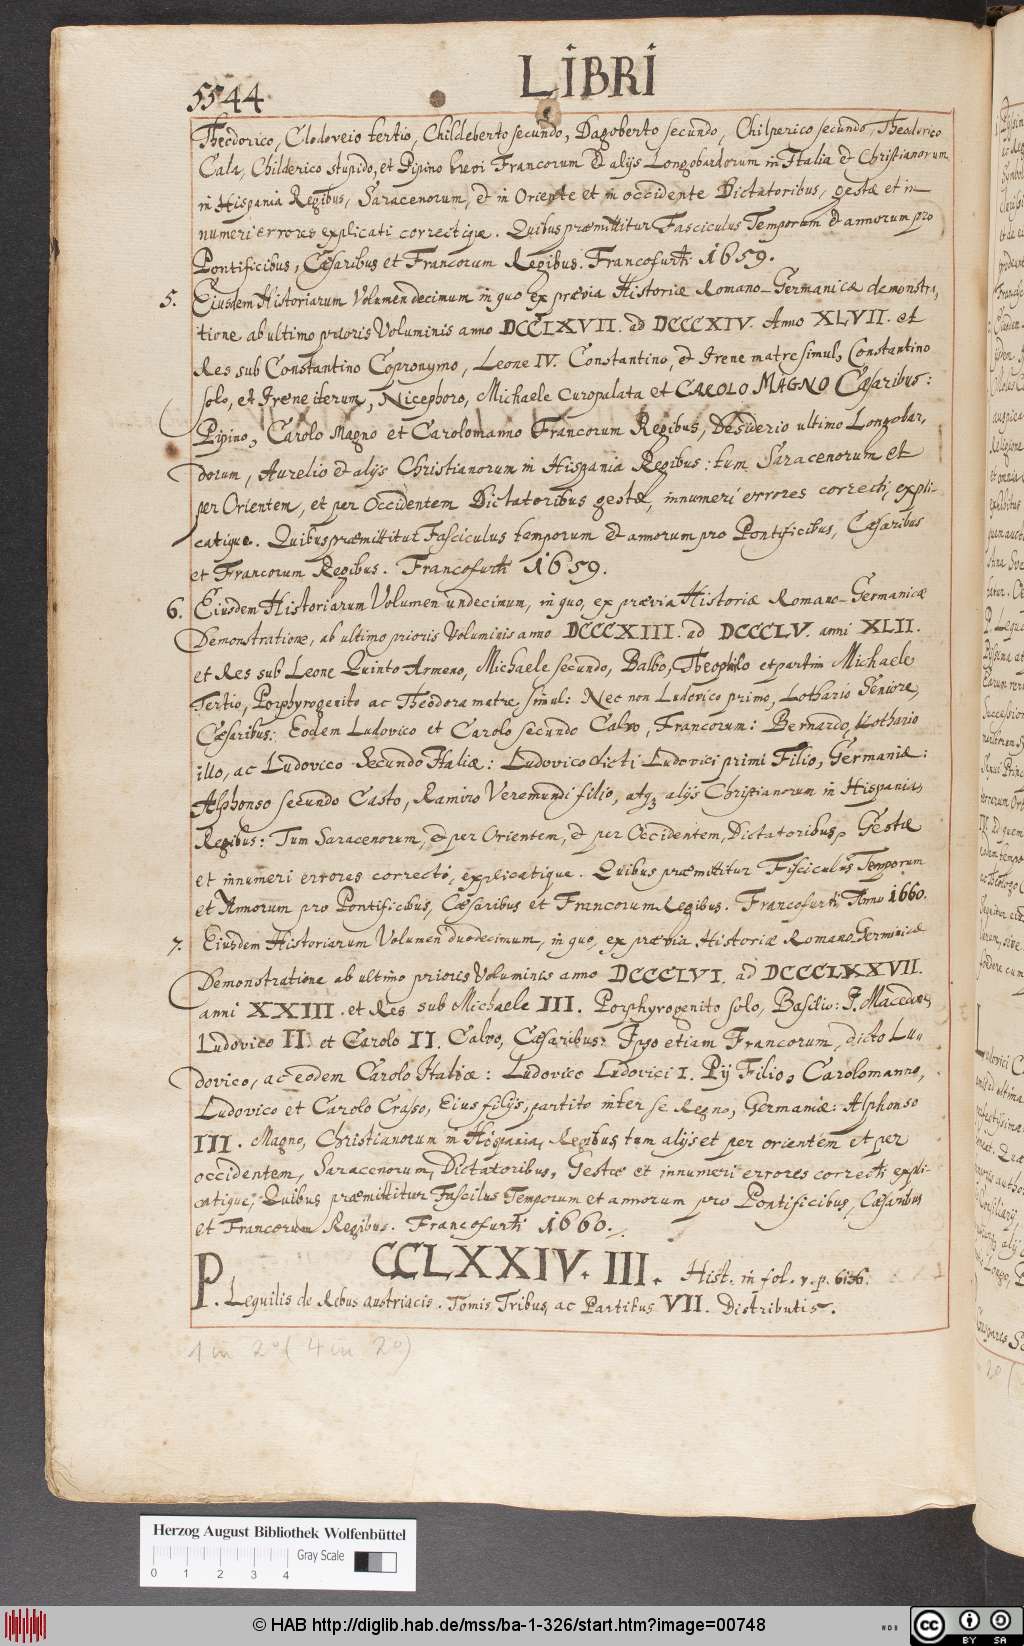 5544
LIBRI
Theodorico, Clodoveio tertio, Childeberto secundo, Dagoberto secundo, Chilperico secundo, Theodorico
Cala, Childerico stupido, et Pipino brevi Francorum & alijs Longobardorum in Italia & Christianorum
in Hispania Regibus, Saracenorum, & in Oriente et in occidente Dictatoribus, gestæ et in-
numeri errores explicati correctique. Quibus præmittitur Fasciculus Temporum & annorum pro
Pontificibus, Cæsaribus et Francorum Regibus. Francofurti 1659.
5. Eiusdem Historiarum Volumen decimum in quo ex prævia Historiæ Romano-Germanicæ demonstra-
tione ab ultimo prioris Voluminis anno DCCLXVII. ad DCCCXIV. Anno XLVII. et
Res sub Constantino Copronymo, Leone IV. Constantino, & Irene matre simul, Constantino
solo, et Irene iterum, Nicephoro, Michaele Curopalata et CAROLO MAGNO Cæsaribus:
Pipino, Carolo Magno et Carolomanno Francorum Regibus, Desiderio ultimo Longobar-
dorum, Aurelio & alijs Christianorum in Hispania Regibus: tum Saracenorum et
per Orientem, et per Occidentem Dictatoribus gestæ, innumeri errores correcti, expli-
catique. Quibus præmittitur Fasciculus temporum & annorum pro Pontificibus, Cæsaribus
et Francorum Regibus. Francofurti 1659.
6. Eiusdem Historiarum Volumen undecimum, in quo, ex prævia Historiæ Romano-Germanicæ
Demonstratione, ab ultimo prioris Voluminis anno DCCCXIII. ad DCCCLV. anni XLII.
et Res sub Leone Quinto Armeno, Michaele secundo, Balbo, Theophilo et partim Michaele
Tertio, Porphyrogenito ac Theodora matre, simul: Nec non Ludovico primo, Lothario Seniore,
Cæsaribus: Eodem Ludovico et Carolo secundo Calvo, Francorum: Bernardo, Lothario
illo, ac Ludovico Secundo Italiæ: Ludovico dicti Ludovici primi Filio, Germaniæ:
Alphonso secundo Casto, Ramiro Veremundi filio, atq3 alijs Christianorum in Hispania,
Regibus: Tum Saracenorum, & per Orientem, & per Occidentem, Dictatoribus, Gestæ
et innumeri errores correcti, explicatique. Quibus præmittitur Fisciculus Temporum
et Annorum pro Pontificibus, Cæsaribus et Francorum Regibus. Francofurti Anno 1660.
7. Eiusdem Historiarum Volumen duodecimum, in quo, ex prævia Historiæ Romano-Germanicæ
Demonstratione ab ultimo prioris Voluminis anno DCCCLVI. ad DCCCLXXVII.
anni XXIII. et Res sub Michaele III. Porphyrogenito solo, Basilio: I. Macedone,
Ludovico II. et Carolo II. Calvo, Cæsaribus: Ipso etiam Francorum, dicto Lu-
dovico, ac eodem Carolo Italiæ: Ludovico Ludovici I. Pij Filio, Carolomanno,
Ludovico et Carolo Crasso, Eius filijs, partito inter se Regno, Germaniæ: Alphonso
III. Magno, Christianorum in Hispania, Regibus tum alijs et per orientem et per
occidentem, Saracenorum, Dictatoribus, Gestæ et innumeri errores correcti expli-
catique; Quibus præmittitur Fascilus Temporum et annorum pro Pontificibus, Cæsaribus
et Francorum Regibus. Francofurti 1660.
CCLXXIV. III. Hist. in fol. v. p. 6136.
P. Lequilis de Rebus austriacis. Tomis Tribus ac Partibus VII. Distributis.
1 in 2° (4 in 2°)
Herzog August Bibliothek Wolfenbüttel
Gray Scale
0 1 2 3 4
© HAB http://diglib.hab.de/mss/ba-1-326/start.htm?image=00748
WDB
CC BY SA